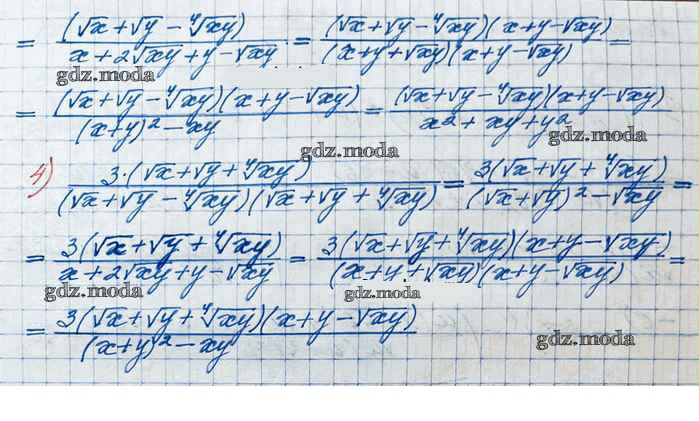 = (√x + √y − ⁴√xy) / (x + 2√xy + y − √xy) = (√x + √y − ⁴√xy)(x + y − √xy) / (x + y + √xy)(x + y − √xy) =
gdz.moda
= (√x + √y − ⁴√xy)(x + y − √xy) / (x + y)² − xy = (√x + √y − ⁴√xy)(x + y − √xy) / x² + xy + y²
gdz.moda
gdz.moda
4) 3·(√x + √y + ⁴√xy) / (√x + √y − ⁴√xy)(√x + √y + ⁴√xy) = 3(√x + √y + ⁴√xy) / (√x + √y)² − √xy =
= 3(√x + √y + ⁴√xy) / x + 2√xy + y − √xy = 3(√x + √y + ⁴√xy)(x + y − √xy) / (x + y + √xy)(x + y − √xy) =
gdz.moda gdz.moda
= 3(√x + √y + ⁴√xy)(x + y − √xy) / (x + y)² − xy
gdz.moda